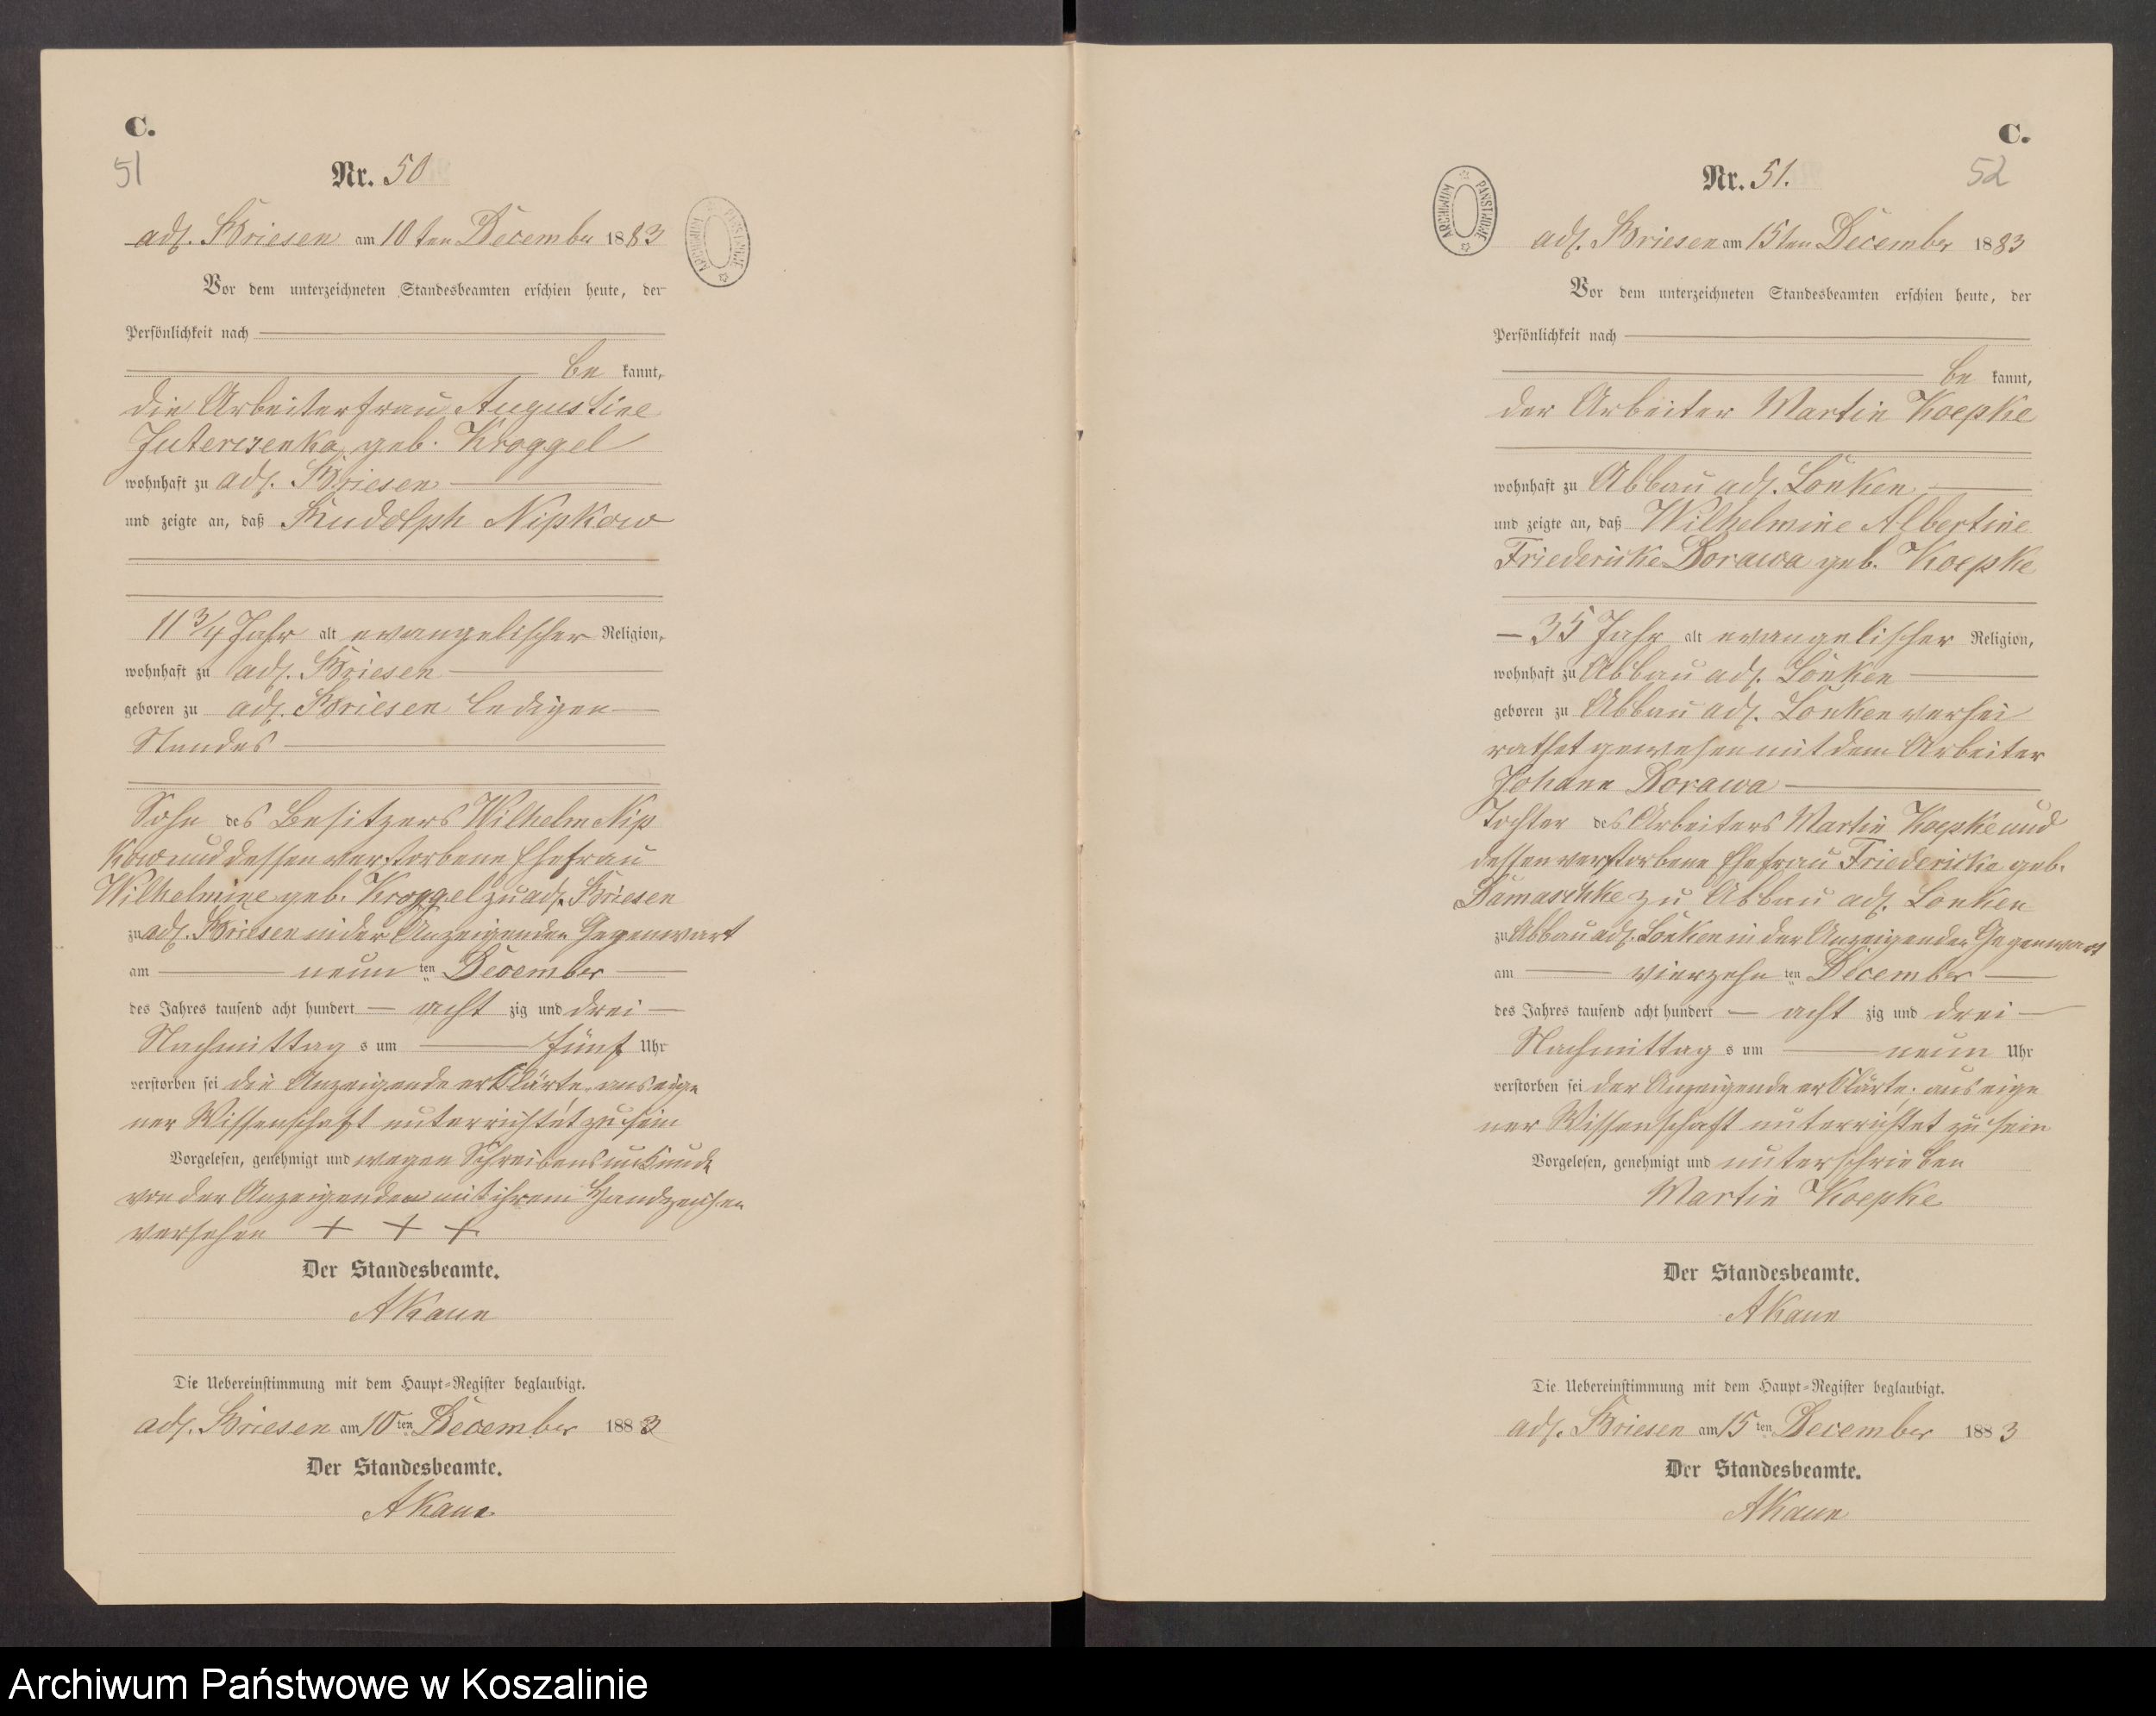 C.
51
Nr. 50
adl. Briesen am 10ten December 1883
Vor dem unterzeichneten Standesbeamten erschien heute, der
Persönlichkeit nach
be kannt,
die Arbeiterfrau Augustine
Juterczenka geb. Kroggel
wohnhaft zu adl. Briesen
und zeigte an, daß Rudolph Nipkow
11 3/4 Jahr alt evangelischer Religion,
wohnhaft zu adl. Briesen
geboren zu adl. Briesen ledigen
Standes
Sohn des Besitzers Wilhelm Nip
kow und dessen verstorbene Ehefrau
Wilhelmine geb. Kroggel zu adl. Briesen
zu adl. Briesen in der Anzeigenden Gegenwart
am neun ten December
des Jahres tausend acht hundert acht zig und drei
Nachmittag s um fünf Uhr
verstorben sei die Anzeigende erklärte, aus eige
ner Wissenschaft unterrichtet zu sein
Vorgelesen, genehmigt und wegen Schreibensunkunde
von der Anzeigenden mit ihrem Handzeichen
versehen + + +
Der Standesbeamte.
AKaun
Die Uebereinstimmung mit dem Haupt-Register beglaubigt.
adl. Briesen am 10ten December 1883
Der Standesbeamte.
AKaun
C.
52
Nr. 51.
ARCHIWUM PAŃSTWOWE
adl. Briesen am 15ten December 1883
Vor dem unterzeichneten Standesbeamten erschien heute, der
Persönlichkeit nach
be kannt,
der Arbeiter Martin Koepke
wohnhaft zu Abbau adl. Lonken
und zeigte an, daß Wilhelmine Albertine
Friedericke Dorawa geb. Koepke
35 Jahr alt evangelischer Religion,
wohnhaft zu Abbau adl. Lonken
geboren zu Abbau adl. Lonken verhei
rathet gewesen mit dem Arbeiter
Johann Dorawa
Tochter des Arbeiters Martin Koepke und
dessen verstorbene Ehefrau Friedericke geb.
Damaschke zu Abbau adl. Lonken
zu Abbau adl. Lonken in der Anzeigenden Gegenwart
am vierzehn ten December
des Jahres tausend acht hundert acht zig und drei
Nachmittag s um neun Uhr
verstorben sei der Anzeigende erklärte, aus eige
ner Wissenschaft unterrichtet zu sein
Vorgelesen, genehmigt und unterschrieben
Martin Koepke
Der Standesbeamte.
AKaun
Die Uebereinstimmung mit dem Haupt-Register beglaubigt.
adl. Briesen am 15ten December 1883
Der Standesbeamte.
AKaun
Archiwum Państwowe w Koszalinie